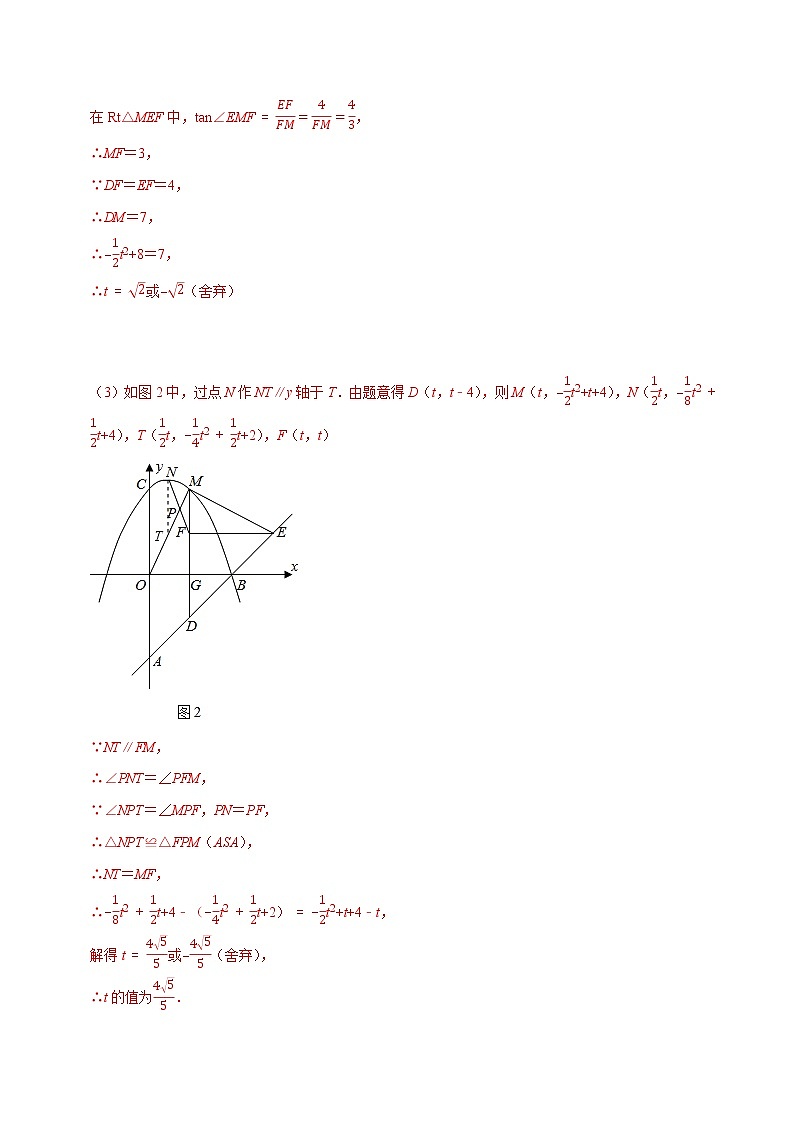 在 Rt△MEF 中，tan∠EMF = EF/FM = 4/FM = 4/3，
∴MF＝3，
∵DF＝EF＝4，
∴DM＝7，
∴﹣1/2t²+8＝7，
∴t = √2或﹣√2（舍弃）
（3）如图 2 中，过点 N 作 NT∥y 轴于 T．由题意得 D（t，t﹣4），则 M（t，﹣1/2t²+t+4），N（1/2t，﹣1/8t² +
1/2t+4），T（1/2t，﹣1/4t² + 1/2t+2），F（t，t）
y N
C M
P
T F E
x
O G B
D
A
图2
∵NT∥FM，
∴∠PNT＝∠PFM，
∵∠NPT＝∠MPF，PN＝PF，
∴△NPT≌△FPM（ASA），
∴NT＝MF，
∴﹣1/8t² + 1/2t+4﹣（﹣1/4t² + 1/2t+2） = ﹣1/2t²+t+4﹣t，
解得 t = 4√5/5或﹣4√5/5（舍弃），
∴t 的值为4√5/5．